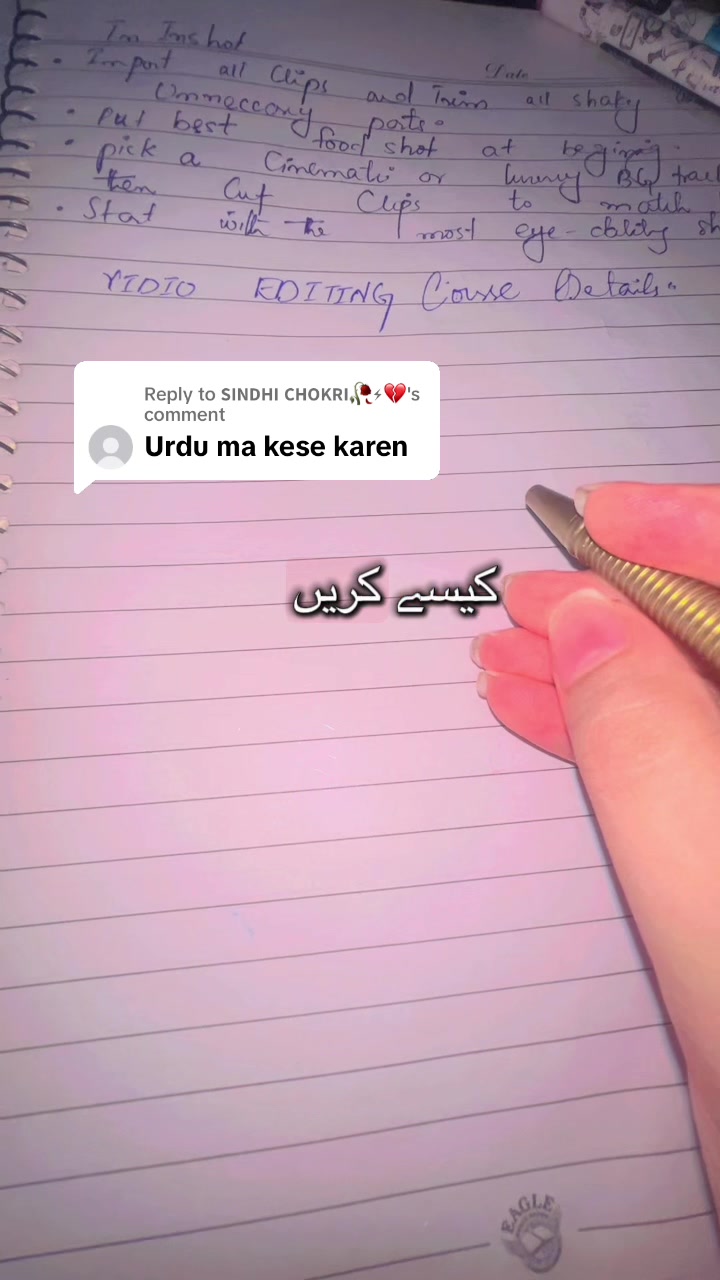 In Inshot
• Import all Clips and Trim all shaky
Unneccory parts.
• Put best food shot at begining.
• pick a Cinematic or luxury BG
then Cut Clips to match
• Stat with the most eye-
VIDIO EDITING Course Details.
Reply to SINDHI CHOKRI🥀⚡💔's
comment
Urdu ma kese karen
کیسے کریں
EAGLE